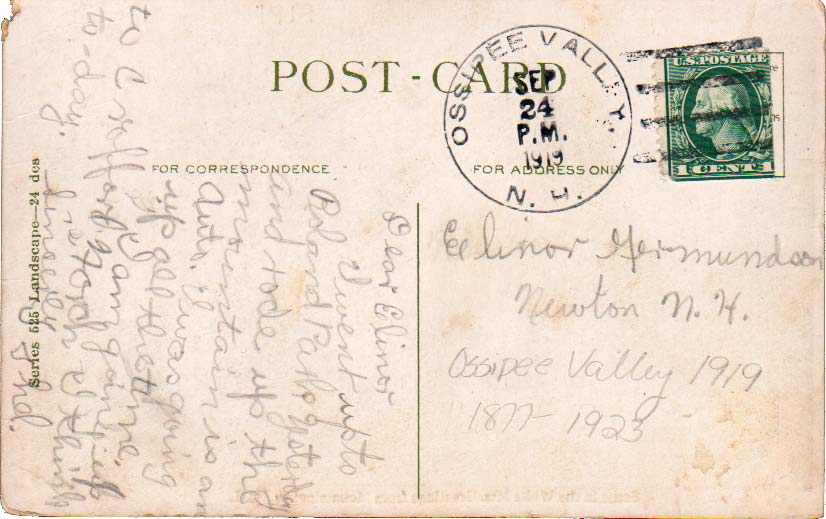 POST-CARD
FOR CORRESPONDENCE
FOR ADDRESS ONLY
OSSIPEE VALLEY,
SEP
24
P.M.
1919
N. H.
U.S. POSTAGE
1 CENT 1
Series 525 Landscape—24 des
Dear Elinor
I went up to
yesterday
and rode up the
mountain is an
auto. I was going
up get that time.
I am going up
to Crafford
to-day.
I think
Sincerely
Elinor
Newton N. H.
Ossipee Valley 1919
1877-1923